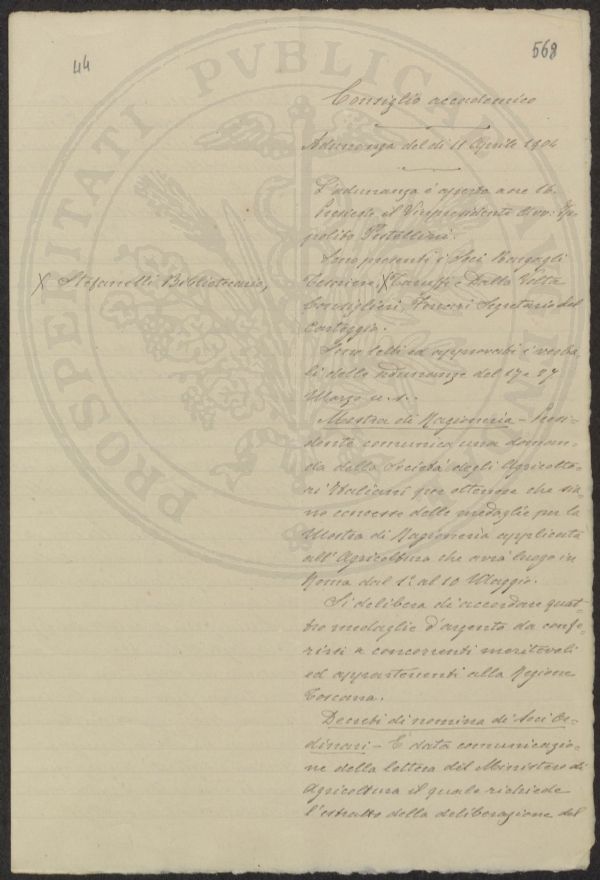 44
568
PROSPERITATI PUBLICAE
Consiglio accademico
Adunanza del di 11 Aprile 1904
L'adunanza è aperta a ore 16.
Presiede il Vicepresidente Ip-
polito Pestellini.
Sono presenti i Soci
X Tanufi e Dalla Volta
Consiglieri, Segretario del
Carteggio.
X Stefanelli Bibliotecario,
Sono letti ed approvati i verba-
li delle adunanze del 17 e 27
Marzo u. s.
Mostra di Ragioneria - Presi-
dente comunica una doman-
da della Società degli Agricolto-
ri Italiani per ottenere che sia-
no concesse delle medaglie per la
Mostra di Ragioneria applicata
all'Agricoltura che avrà luogo in
Roma dal 1° al 10 Maggio.
Si delibera di accordare quat-
tro medaglie d'argento da confe-
rirsi a concorrenti meritevoli
ed appartenenti alla Regione
Toscana.
Decreti di nomina di Soci Or-
dinari - È data comunicazio-
ne della lettera del Ministero di
Agricoltura il quale richiede
l'estratto della deliberazione del